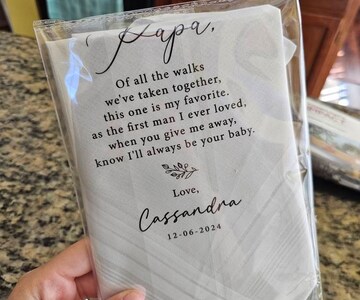 Papa,
Of all the walks
we've taken together,
this one is my favorite.
as the first man I ever loved,
when you give me away,
know I'll always be your baby.
Love,
Cassandra
12-06-2024